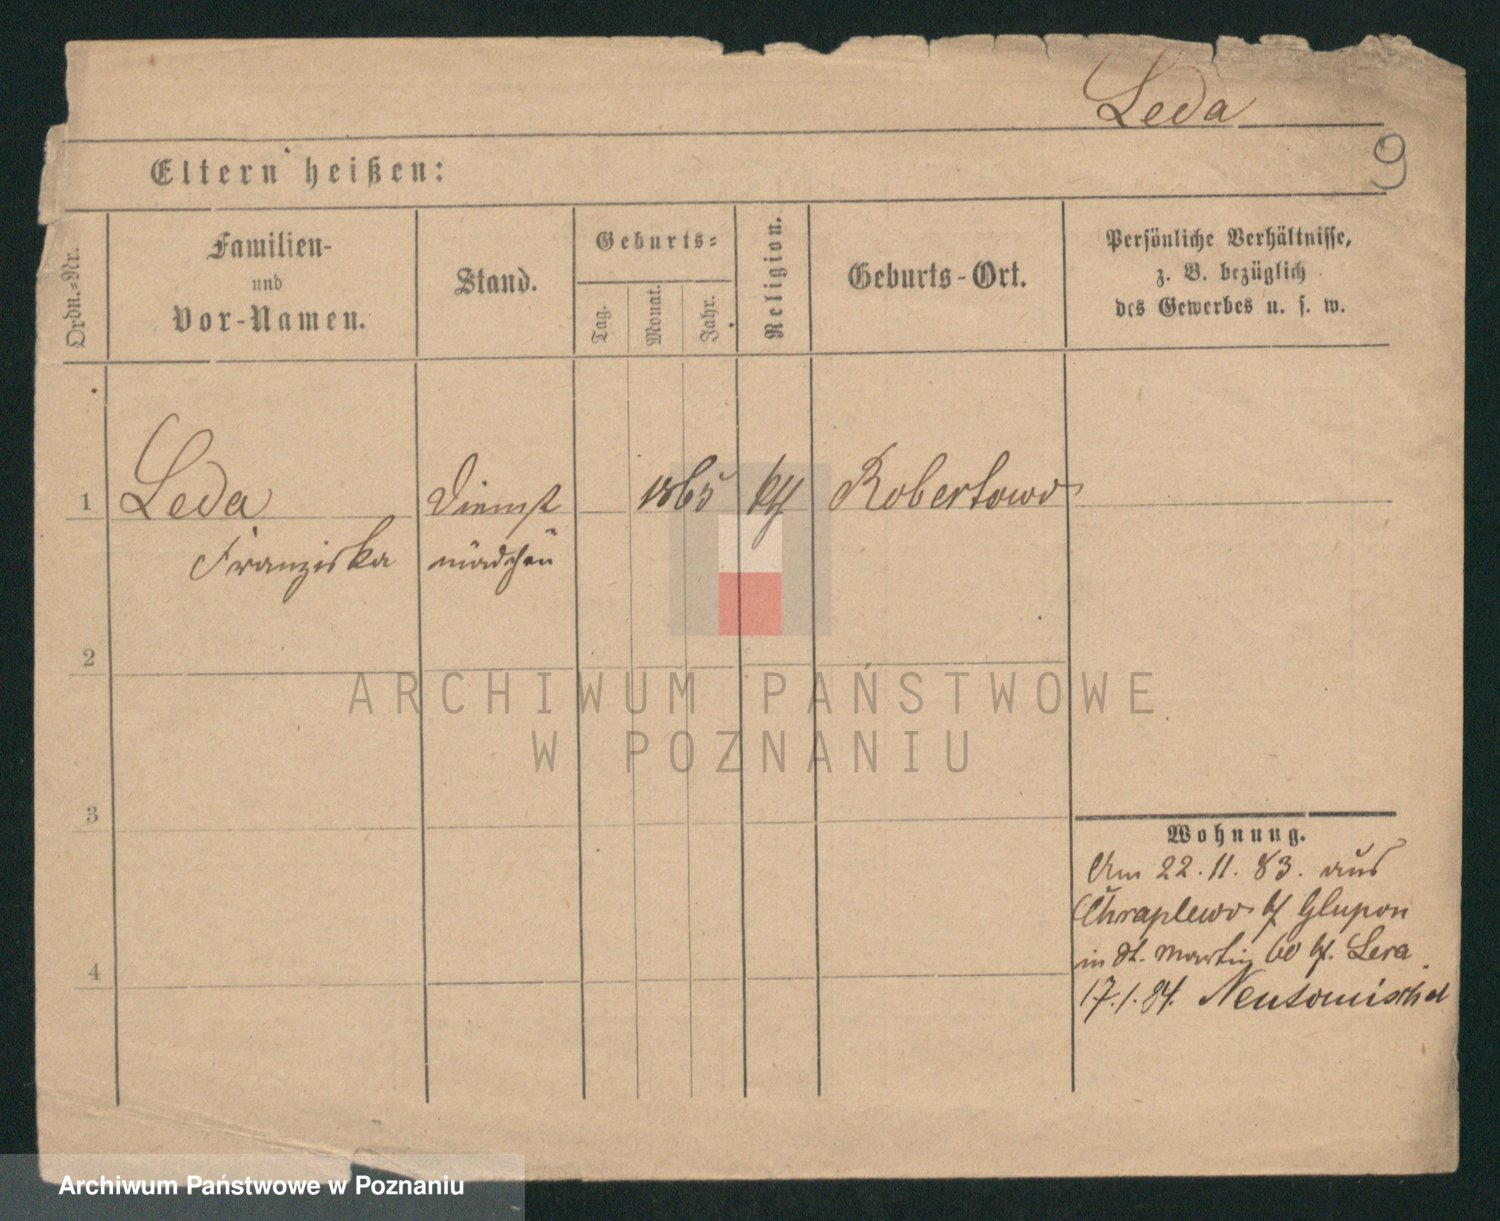 Leda
9
Eltern heißen:
Ordn.-Nr.
Familien-
und
Vor-Namen.
Stand.
Geburts-
Tag.
Monat.
Jahr.
Religion.
Geburts-Ort.
Persönliche Verhältnisse,
z. B. bezüglich
des Gewerbes u. s. w.
1 Leda Dienst 1865 kth Robertowo
Franziska mädchen
2
3
4
Wohnung.
Am 22.11.83. aus
Chraplewo b/ Glupon
in St. Martin 60 b/.
17.1.84. Neutomischel
ARCHIWUM PAŃSTWOWE
W POZNANIU
Archiwum Państwowe w Poznaniu